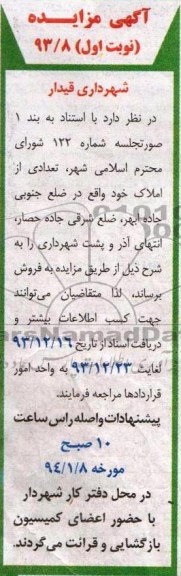 آگهی مزایده
(نوبت اول) ۹۳/۸
شهرداری قیدار
در نظر دارد با استناد به بند ۱
صورتجلسه شماره ۱۲۲ شورای
محترم اسلامی شهر، تعدادی از
املاک خود واقع در ضلع جنوبی
جاده ابهر، ضلع شرقی جاده حصار،
انتهای آذر و پشت شهرداری را به
شرح ذیل از طریق مزایده به فروش
برساند، لذا متقاضیان می‌توانند
جهت کسب اطلاعات بیشتر و
دریافت اسناد از تاریخ ۹۳/۱۲/۱۶
لغایت ۹۳/۱۲/۲۳ به واحد امور
قراردادها مراجعه فرمایند.
پیشنهادات واصله راس ساعت
۱۰ صبح
مورخه ۹۴/۱/۸
در محل دفتر کار شهردار
با حضور اعضای کمیسیون
بازگشایی و قرائت می‌گردند.